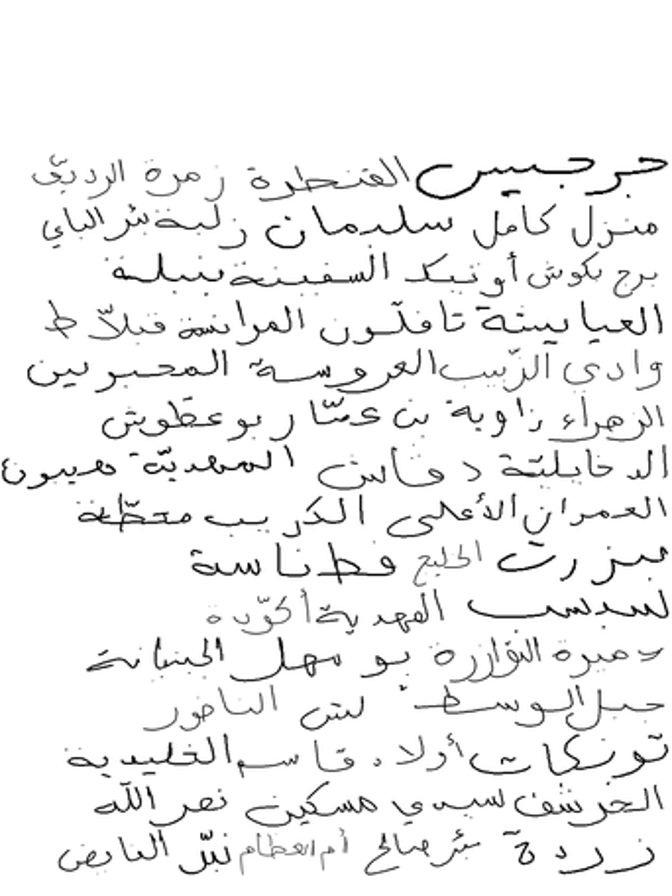 جرجيس القنطرة زمرة الرديّف
منزل كامل سليمان زلبة بئر الباي
برج بكوش أوتيك السفينة نبيلة
العبابيثة تافلّون العرائسة قبلاّط
وادي الزّبيب العروسة المحبرين
الزهراء زاوية بن عمّار بوعطوش
الدخايلتة دقاش المهديّة هيبون
العمران الأعلى الكريب محطّة
بنزرت الخليج فطناسة
لسدسب المهدية أكوّدة
حميرة التوازرة بوسهل الجبانة
جبل الوسط لش الناضور
تونكات أولاد قاسم الخليدية
الخرشف لسيدي مسكين نصر الله
زردة بئر صالح أم العظام نبّر